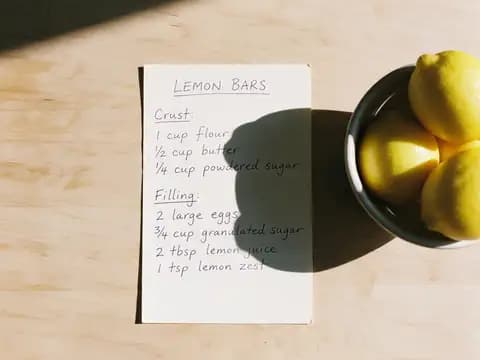 LEMON BARS
Crust:
1 cup flour
½ cup butter
¼ cup powdered sugar
Filling:
2 large eggs
¾ cup granulated sugar
2 tbsp lemon juice
1 tsp lemon zest